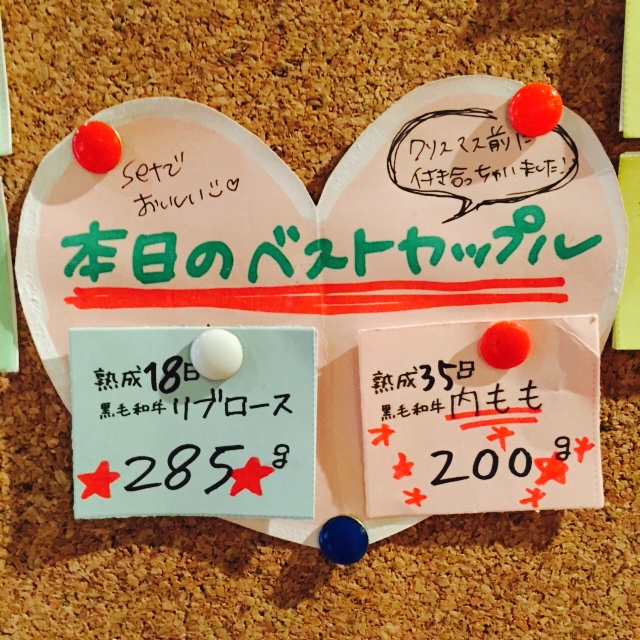 setで
おいしい♡
クリスマス前に
付き合っちゃいました!
本日のベストカップル
熟成18日
黒毛和牛リブロース
285g
熟成35日
黒毛和牛内もも
200g